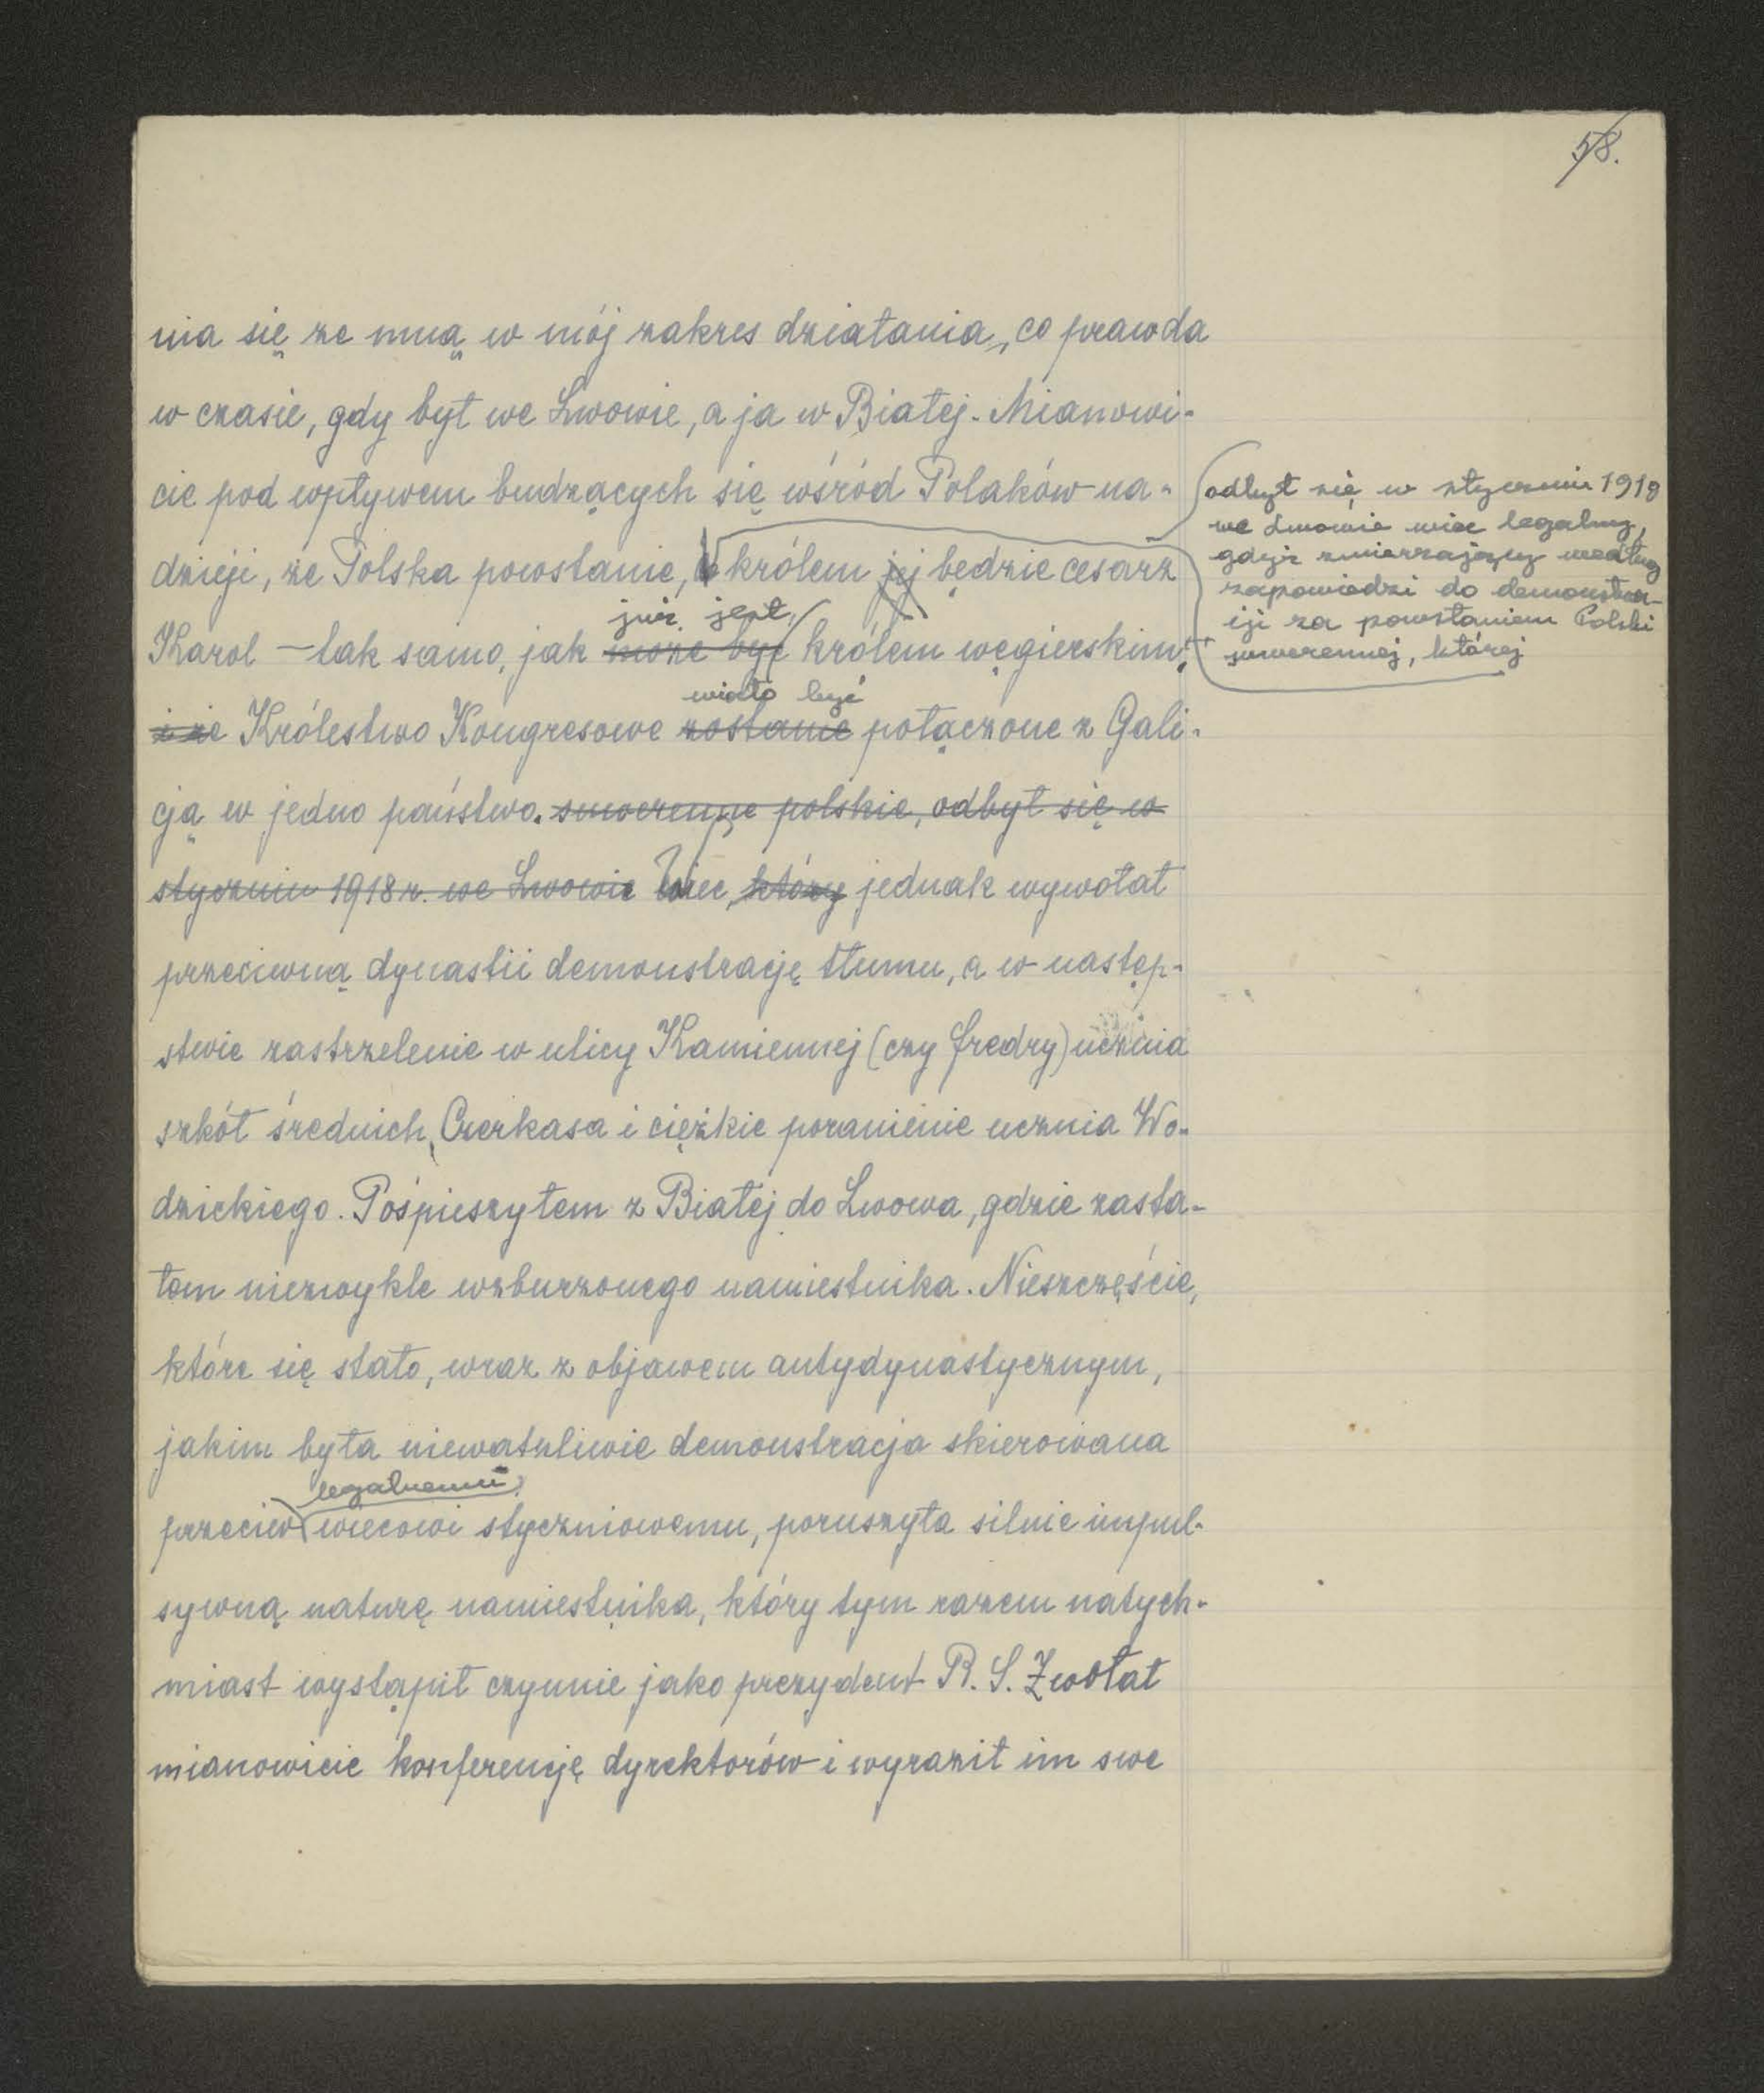 58.
nia się ze mną w mój zakres działania, co prawda
w czasie, gdy był we Lwowie, a ja w Białej. Mianowi-
cie pod wpływem budzących się wśród Polaków na-
dzieji, że Polska powstanie, królem jej będzie cesarz
już jest
Karol — tak samo, jak może być królem węgierskim,
miało być
i że Królestwo Kongresowe zostanie połączone z Gali-
cją w jedno państwo. suwerenne polskie, odbył się w
styczniu 1918 r. we Lwowie Wiec, który jednak wywołał
przeciwną dynastii demonstrację tłumu, a w następ-
stwie zastrzelenie w ulicy Kamiennej (czy Fredry) ucznia
szkół średnich, Czerkasa i ciężkie poranienie ucznia Wo-
dzickiego. Pośpieszyłem z Białej do Lwowa, gdzie zasta-
łem niezwykle wzburzonego namiestnika. Nieszczęście,
które się stało, wraz z objawem antydynastycznym,
jakim była niewątpliwie demonstracja skierowana
legalnemu
przeciw wiecowi styczniowemu, poruszyła silnie impul-
sywną naturę namiestnika, który tym razem natych-
miast wystąpił czynnie jako prezydent R. S. Zwołał
mianowicie konferencję dyrektorów i wyraził im swe
odbył się w styczniu 1918
we Lwowie wiec legalny,
gdyż zmierzający według
zapowiedzi do demonstra-
cji za powstaniem Polski
suwerennej, której